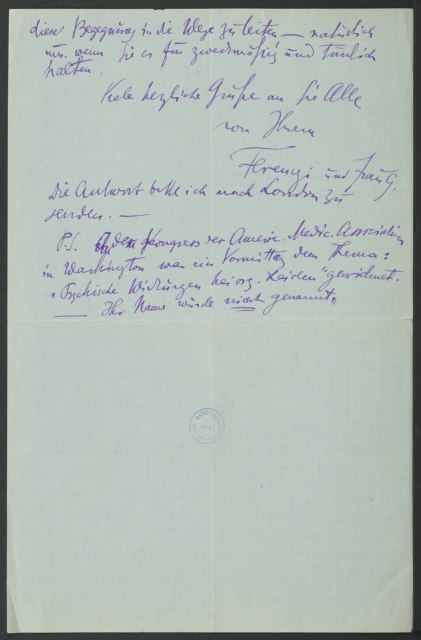 diese Begegnung in die Wege zu leiten — natürlich
nur wenn Sie es für zweckmäßig und tunlich
halten.
Viele herzliche Grüße an Sie Alle
von Ihrem
Ferenczi und Frau G.
Die Antwort bitte ich nach London zu
senden. —
P.S. In dem Kongress der Americ. Medic. Association
in Washington war ein Vormittag dem Thema:
„Psychische Wirkungen bei org. Leiden" gewidmet.
— Ihr Name wurde nicht genannt.